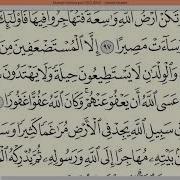 تَكُنْ أَرْضُ ٱللَّهِ وَٰسِعَةً فَتُهَاجِرُوا۟ فِيهَا فَأُو۟لَٰٓئِكَ
وَسَآءَتْ مَصِيرًا ﴿٩٧﴾ إِلَّا ٱلْمُسْتَضْعَفِينَ مِنَ
وَٱلْوِلْدَٰنِ لَا يَسْتَطِيعُونَ حِيلَةً وَلَا يَهْتَدُونَ
عَسَى ٱللَّهُ أَن يَعْفُوَ عَنْهُمْ وَكَانَ ٱللَّهُ عَفُوًّا غَفُورًا
سَبِيلِ ٱللَّهِ يَجِدْ فِى ٱلْأَرْضِ مُرَٰغَمًا كَثِيرًا وَسَ
بَيْتِهِۦ مُهَاجِرًا إِلَى ٱللَّهِ وَرَسُولِهِۦ ثُمَّ يُدْرِكْهُ